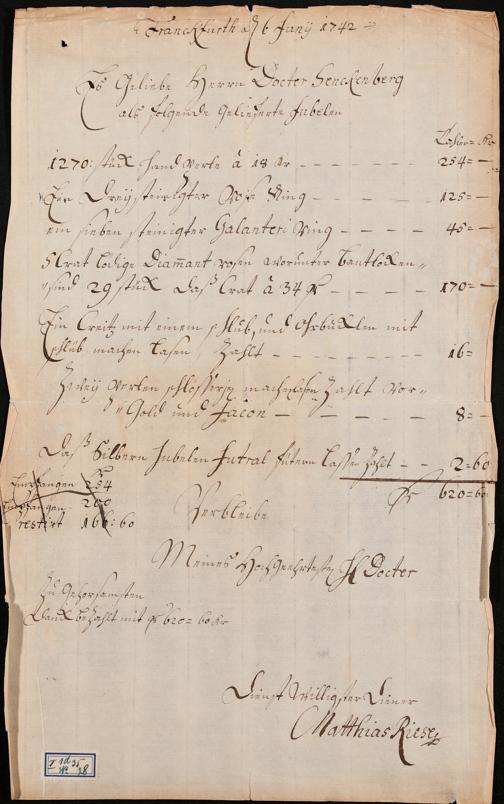 Franckfurth 6 Juny 1742
Geliebe Herrn Docter Senckenberg
als folgende Gelieferte Jubelen
Thaler = Kr
1270: stück sand Perle â 18 Kr - - - - - - 254= -
Ein Dreysteinigter Ring - - - - 125= -
ein sieben steinigter Galanteri Ring - - - - 45= -
5 Crat lodige Diamant rosen worunter
sind 29 stück Daß Crat â 34 - - - - 170= -
Ein Creitz mit einem schlub, und mit
schlub machen lasen, Zahlt - - - - - - 16=
Zwey Perlen machen lasen Zahlt vor
Gold und Facon - - - - - 8=
Daß Silbern Jubelen Futral fütern lassen Zahlt - - 2=60
620=60
Empfangen 254
Empfangen 200
restirt 166:60
Verbleibe
Meines HochGeehrtesten H Docter
Zu Gehorsamsten
Danck bezahlt mit 620=60 Kr
Dienst Willigster Diener
Matthias Riese